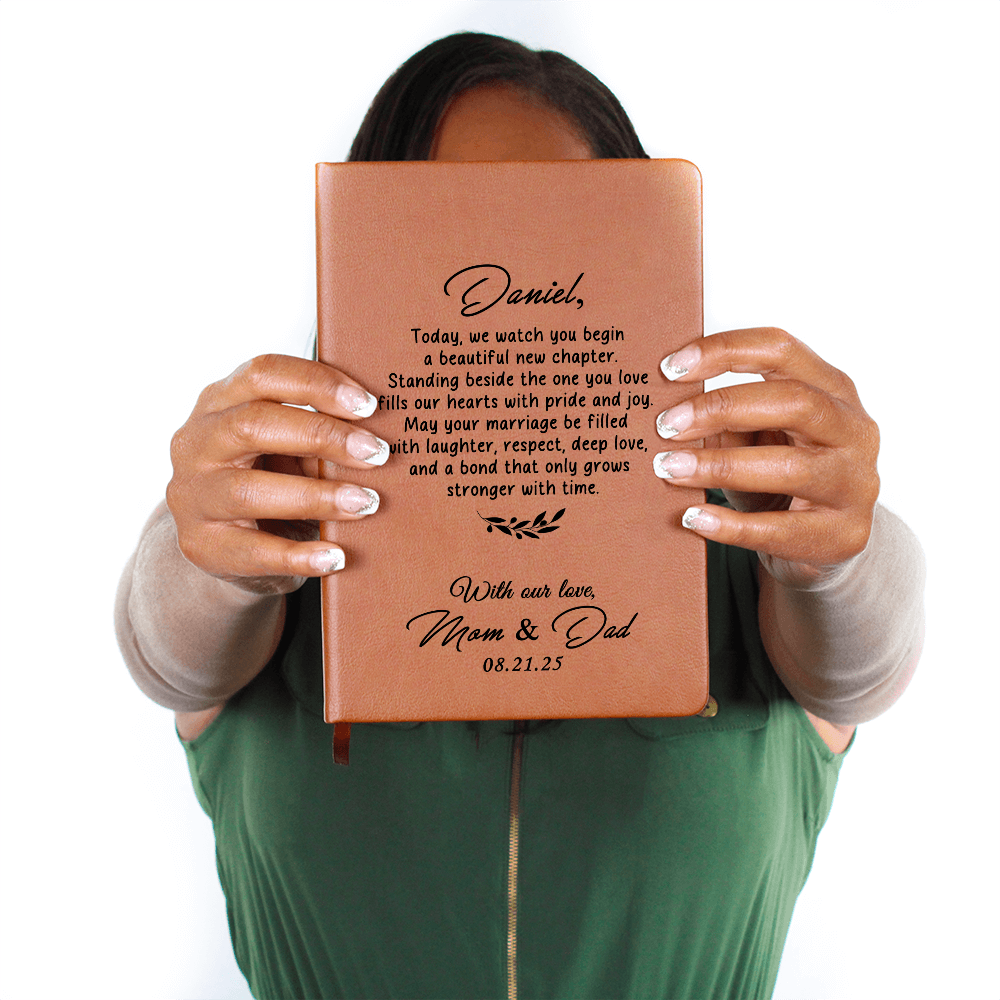 Daniel,
Today, we watch you begin
a beautiful new chapter.
Standing beside the one you love
fills our hearts with pride and joy.
May your marriage be filled
with laughter, respect, deep love,
and a bond that only grows
stronger with time.
With our love,
Mom & Dad
08.21.25